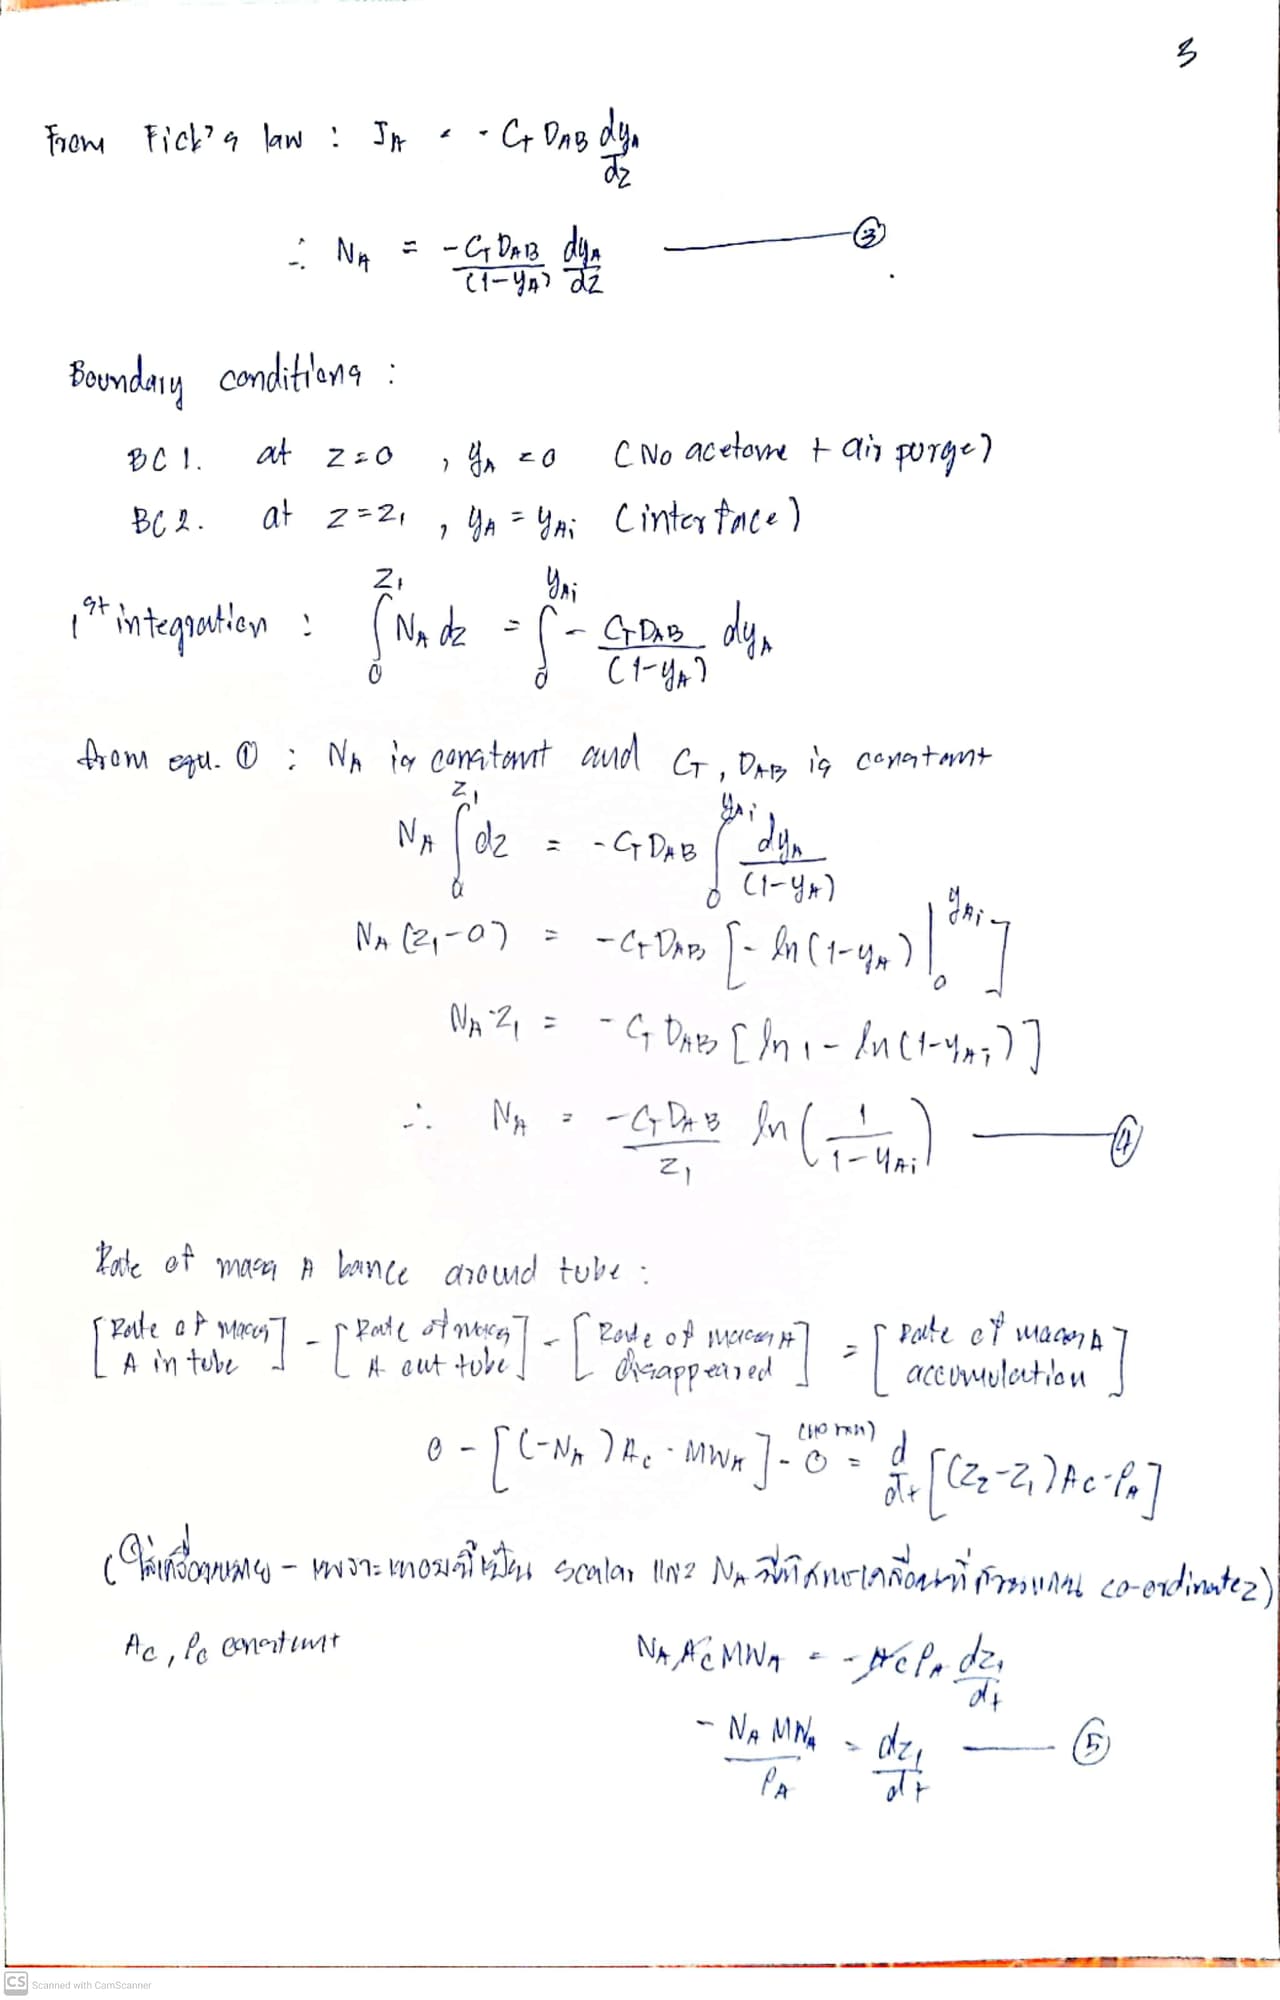 3
From Fick's law : J_A = - C_T D_AB dy_A/dz
∴ N_A = -C_T D_AB/(1-y_A) dy_A/dz ——— ③
Boundary conditions :
BC 1. at z=0 , y_A = 0 (No acetone + air purge)
BC 2. at z=z_1 , y_A = y_Ai (interface)
1st integration : ∫_0^{z_1} N_A dz = ∫_0^{y_Ai} - C_T D_AB/(1-y_A) dy_A
from equ. ① : N_A is constant and C_T , D_AB is constant
N_A ∫_0^{z_1} dz = -C_T D_AB ∫_0^{y_Ai} dy_A/(1-y_A)
N_A (z_1-0) = -C_T D_AB [- ln(1-y_A)|_0^{y_Ai}]
N_A·z_1 = -C_T D_AB [ln 1 - ln(1-y_Ai)]
∴ N_A = -C_T D_AB/z_1 ln(1/(1-y_Ai)) ——— ④
Rate of mass A bance around tube :
[Rate of mass A in tube] - [Rate of mass A out tube] - [Rate of mass A disappeared] = [Rate of mass A accumulation]
0 - [(-N_A)A_c·MW_A] - 0 (no rxn) = d/dt [(z_2-z_1)A_c·ρ_A]
(ใส่เครื่องหมาย - เพราะเทอมนี้เป็น scalar และ N_A มีทิศการเคลื่อนที่สวนแกน co-ordinate z)
A_c , ρ_c constant
N_A A_c MW_A = -A_c ρ_A dz_1/dt
- N_A MW_A/ρ_A = dz_1/dt ——— ⑤
CS Scanned with CamScanner